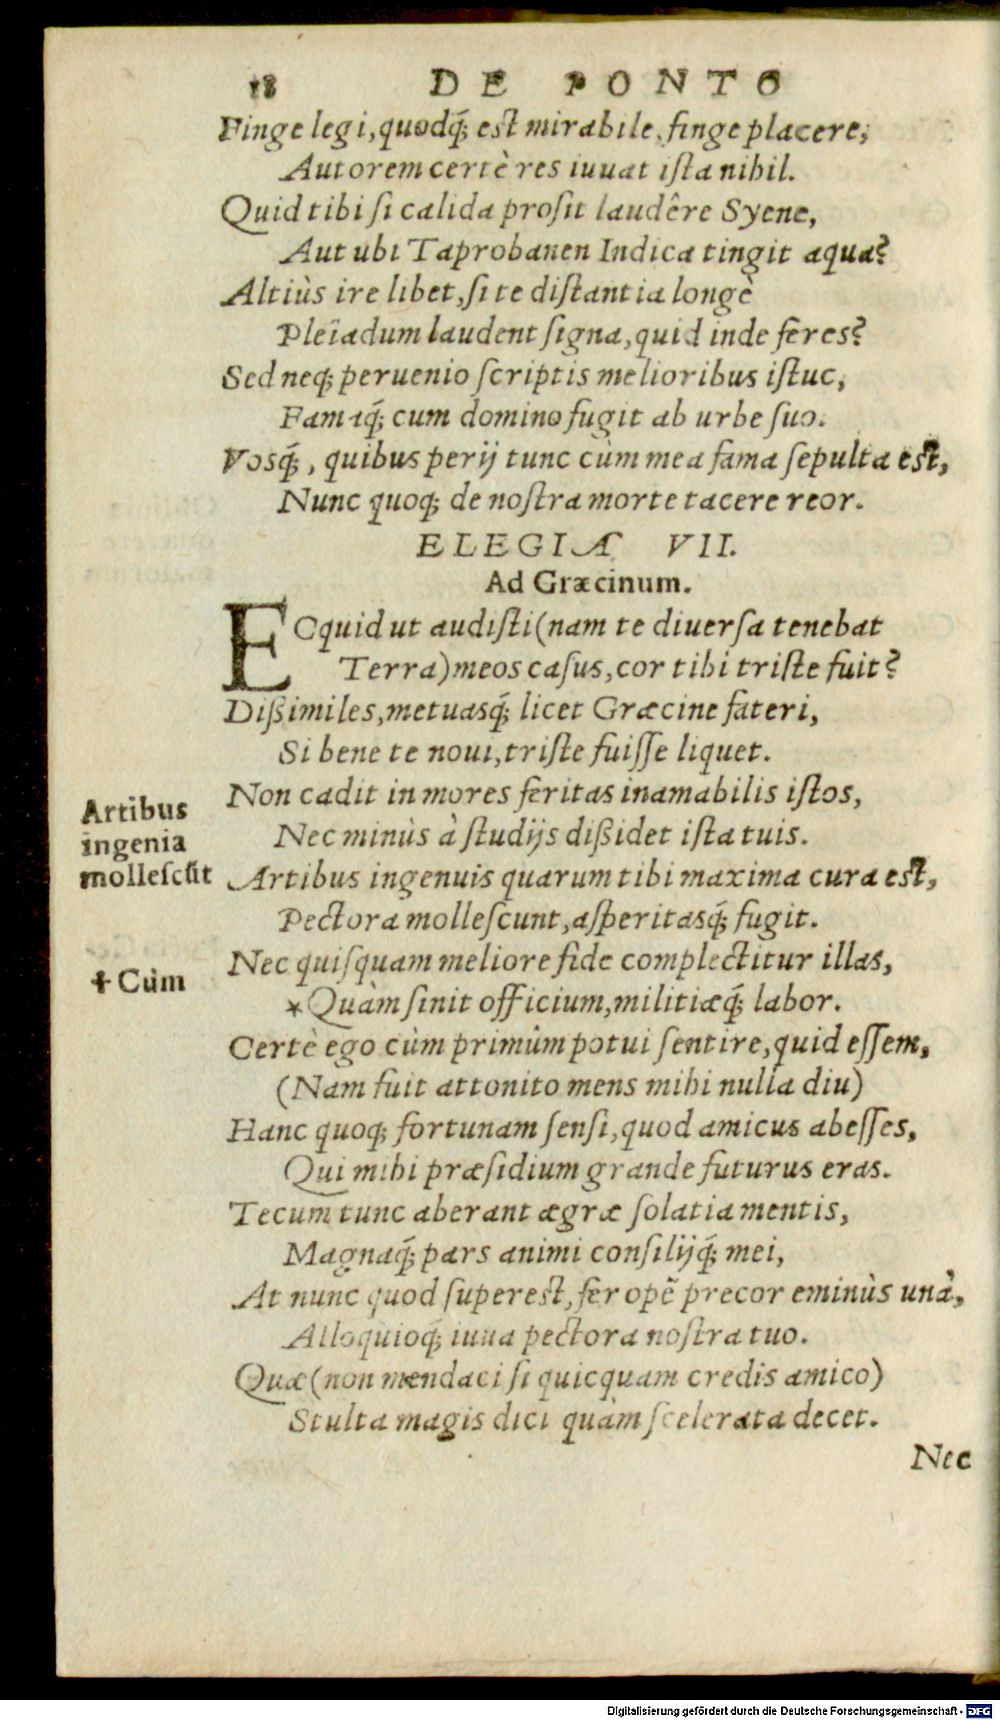 18 DE PONTO
Finge legi, quodq́; est mirabile, finge placere,
Autorem certè res iuuat ista nihil.
Quid tibi si calida prosit laudêre Syene,
Aut ubi Taprobanen Indica tingit aqua?
Altiùs ire libet, si te distantia longè
Pleîadum laudent signa, quid inde feres?
Sed neq; peruenio scriptis melioribus istuc,
Famaq́; cum domino fugit ab urbe suo.
Vosq́;, quibus perij tunc cùm mea fama sepulta est,
Nunc quoq; de nostra morte tacere reor.
ELEGIA VII.
Ad Græcinum.
ECquid ut audisti (nam te diuersa tenebat
Terra) meos casus, cor tibi triste fuit?
Dißimiles, metuasq́; licet Græcine fateri,
Si bene te noui, triste fuisse liquet.
Non cadit in mores feritas inamabilis istos,
Nec minùs à studijs dißidet ista tuis.
Artibus
ingenia
mollescūt
Artibus ingenuis quarum tibi maxima cura est,
Pectora mollescunt, asperitasq́; fugit.
Nec quisquam meliore fide complectitur illas,
✝Cùm
*Quàm sinit officium, militiæq́; labor.
Certè ego cùm primûm potui sentire, quid essem,
(Nam fuit attonito mens mihi nulla diu)
Hanc quoq; fortunam sensi, quod amicus abesses,
Qui mihi præsidium grande futurus eras.
Tecum tunc aberant ægræ solatia mentis,
Magnaq́; pars animi consilijq́; mei,
At nunc quod superest, fer opẽ precor eminùs unà,
Alloquioq́; iuua pectora nostra tuo.
Quæ (non mendaci si quicquam credis amico)
Stulta magis dici quàm scelerata decet.
Nec
Digitalisierung gefördert durch die Deutsche Forschungsgemeinschaft - DFG